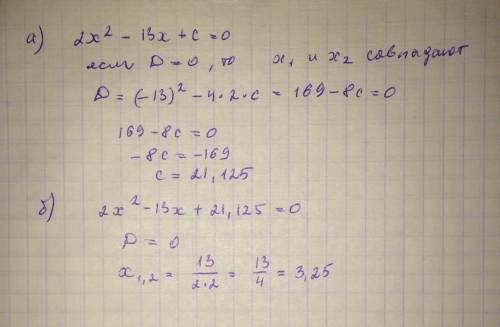 а) 2x² - 13x + c = 0
если D = 0, то x₁ и x₂ совпадают
D = (-13)² - 4·2·c = 169 - 8c = 0
169 - 8c = 0
-8c = -169
c = 21,125
б) 2x² - 13x + 21,125 = 0
D = 0
x₁,₂ = 13/2·2 = 13/4 = 3,25